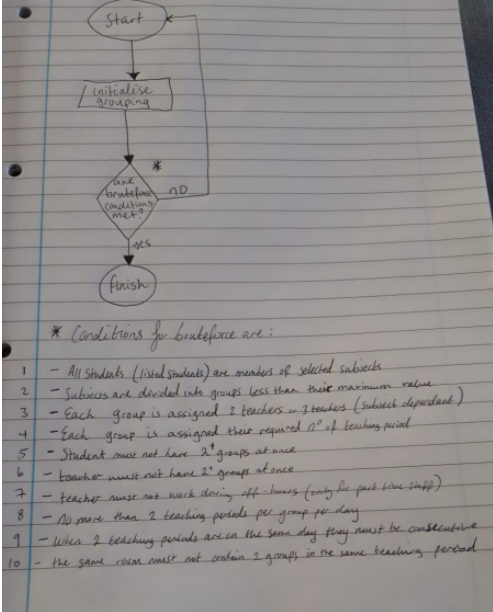 Start
initialise
grouping
*
are
bruteforce
conditions
met?
no
yes
finish
* Conditions for bruteforce are:
1 - All students (listed students) are members of selected subjects
2 - Subjects are divided into groups less than their maximum value
3 - Each group is assigned 2 teachers or 3 teachers (subject dependant)
4 - Each group is assigned their required nº of teaching period
5 - Student must not have 2+ groups at once
6 - teacher must not have 2+ groups at once
7 - teacher must not work during off-hours (only for part time staff)
8 - no more than 2 teaching periods per group per day
9 - When 2 teaching periods are on the same day they must be consecutive
10 - the same room must not contain 2 groups in the same teaching period